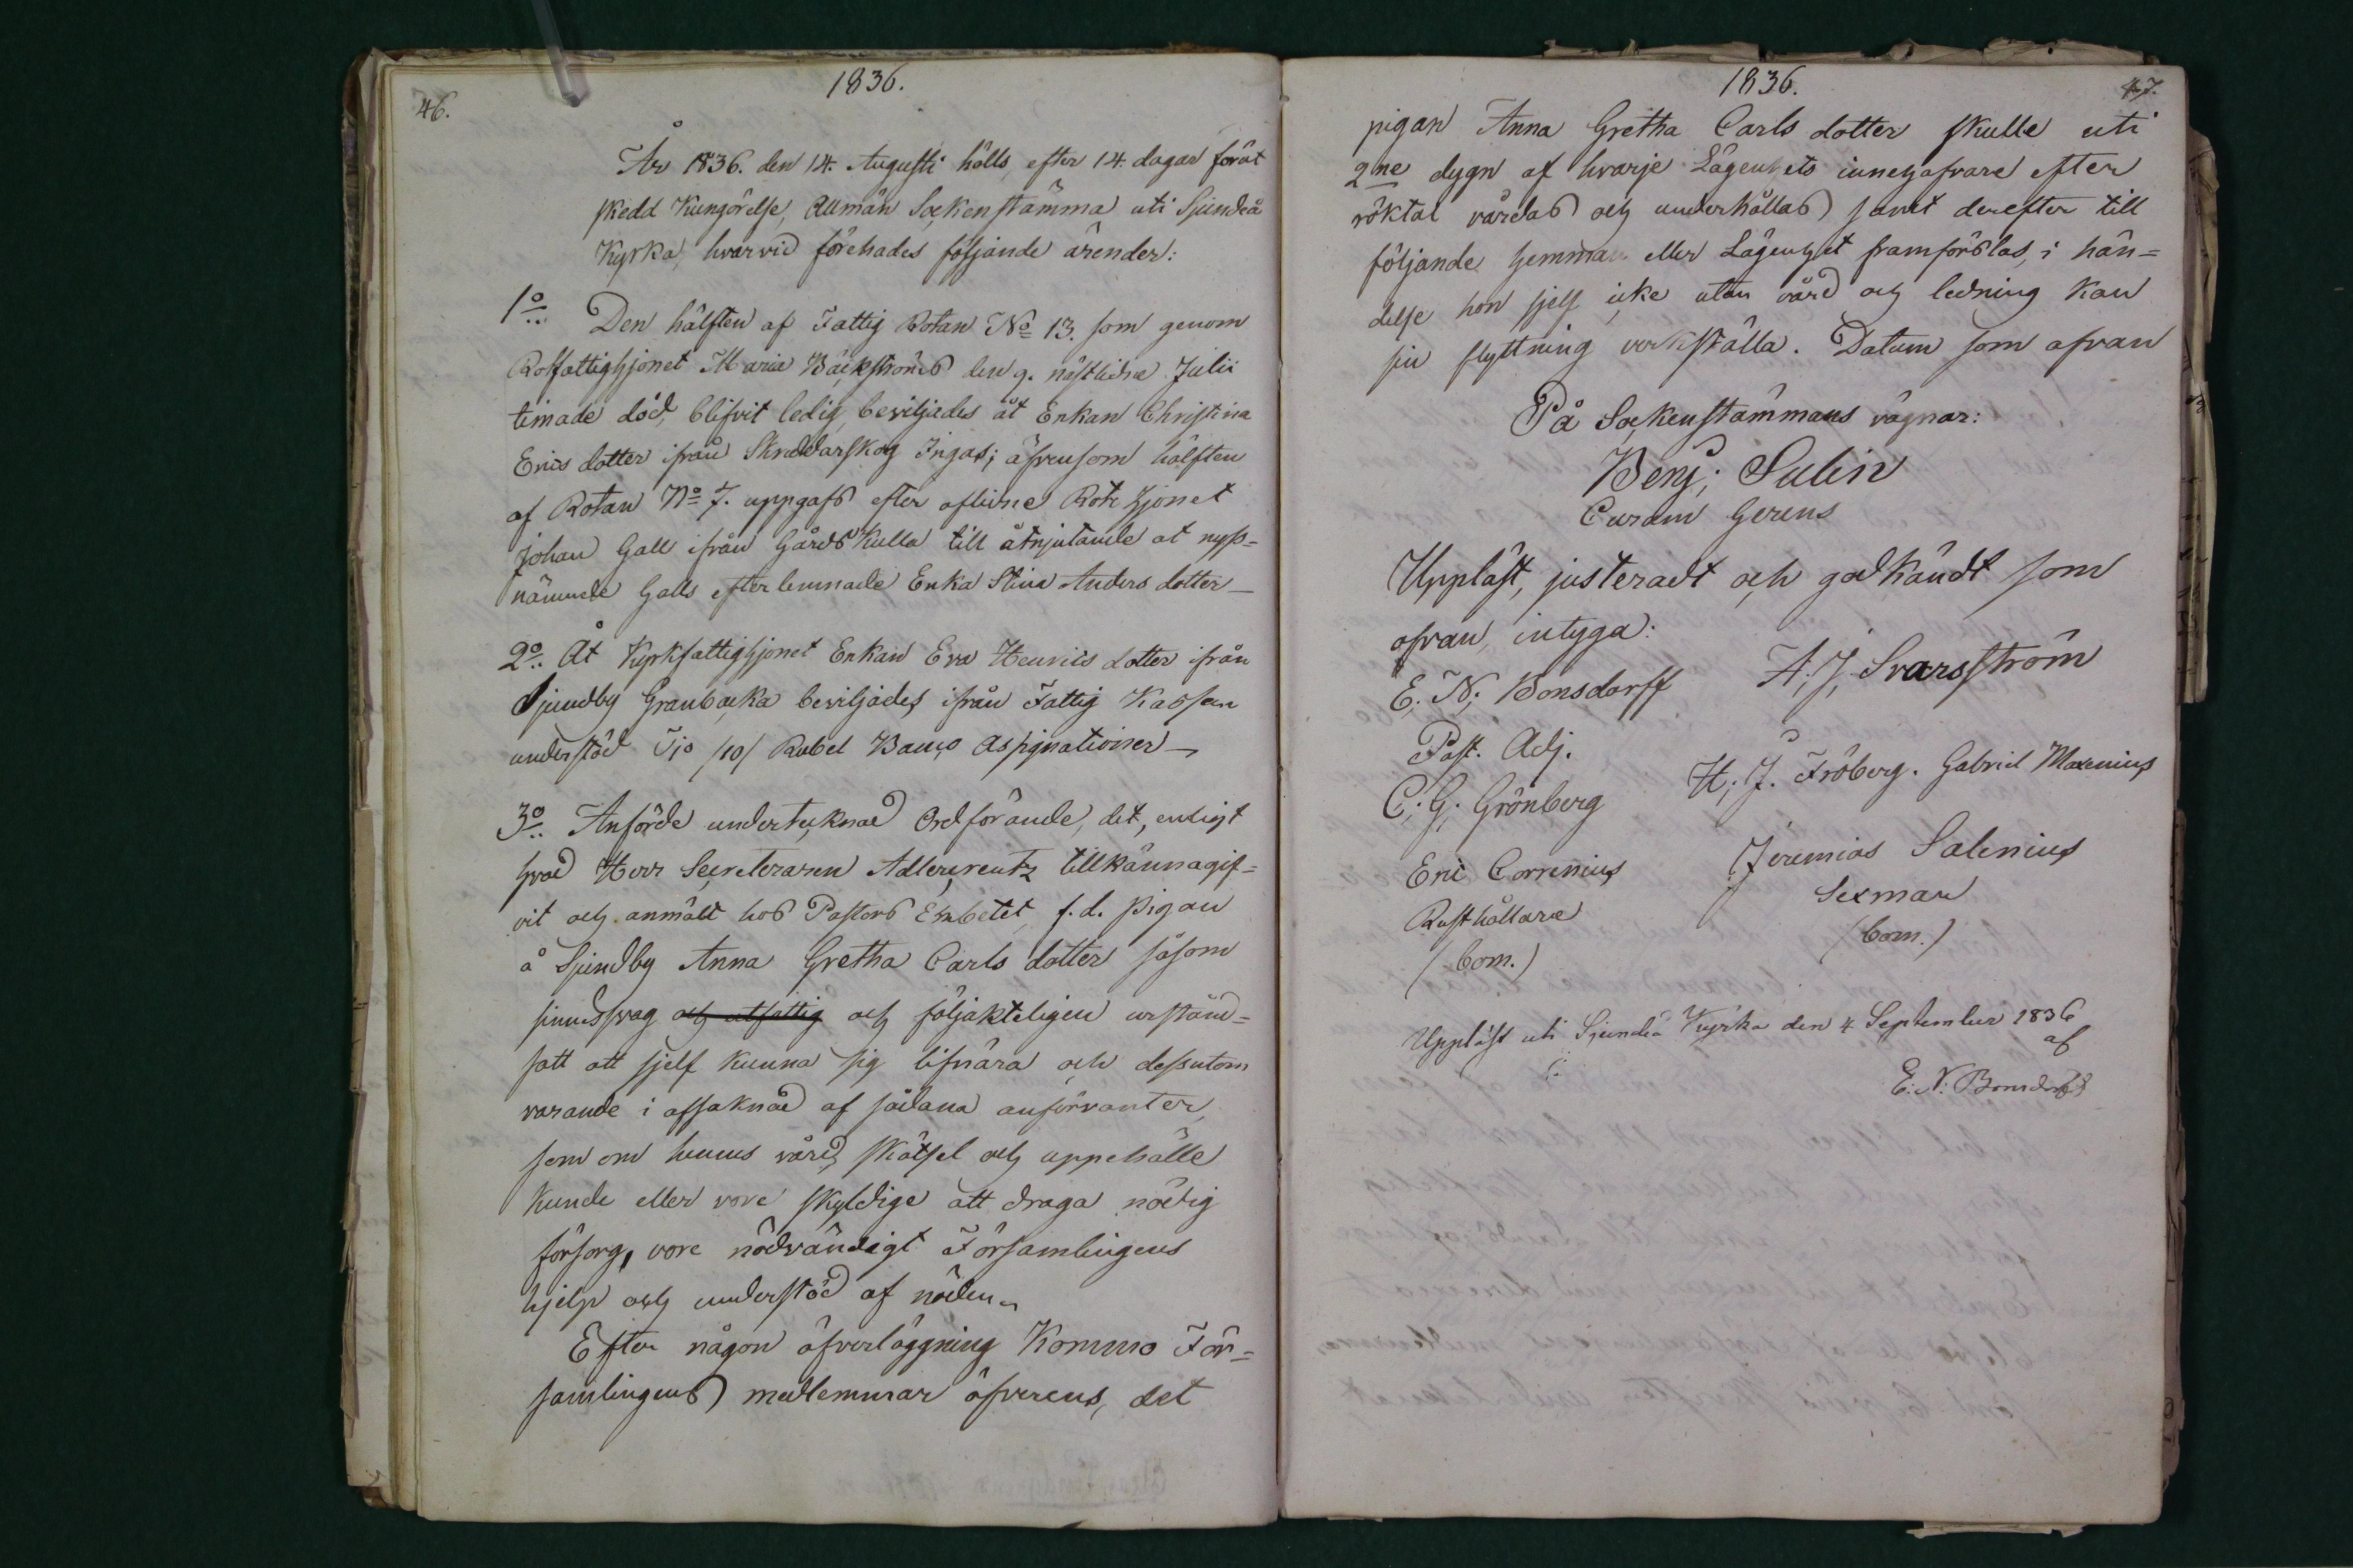 1836.
46.
År 1836. den 14. Augusti hölls, efter 14. dagar förut
skedd Kungörelse, Allmän Sockenstämma uti Sjundeå
Kyrka, hvarvid förehades följande ärender:
1o Den hälften af Fattig Rotan No 13. som genom
Rotfattighjonet Maria Bäckströms den 9. nästledne Julii
timade död, blifvit ledig, beviljades åt Enkan Christina
Erics dotter ifrån Skraddarskog Ingas; äfvensom hälften
af Rotan No 7. uppgafs efter aflidne Rote hjonet
Johan Gall ifrån Gårds Kulla till åtnjutande at nyss-
nämnde Galls efterlemnade Enka Stina Anders dotter —
2o Åt Kyrkfattighjonet Enkan Eva Henrics dotter ifrån
Sjundby Granbacka beviljades ifrån Fattig Kassan
understöd Tjo /10/ Rubel Banco Assignationer —
3o Anförde undertecknad Ordförande, det, enligt
hvad Herr Secreteraren Adlercreutz tillkännagif-
vit och anmält hos Pastors Embetet, f.d. pigan
å Sjundby Anna Gretha Carls dotter såsom
sinnessvag och utfattig och följakteligen urstånd-
satt att sjelf kunna sig lifnära och dessutom
varande i afsaknad af sådana anförvanter,
som om hennes vård, skötsel och uppehälle
kunde eller vore skyldige att draga nödig
försorg, vore nödvändigt Församlingens
hjelp och understöd af nöden.
Efter någon öfverläggning Kommo För-
samlingens medlemmar öfverens, det
1836.
47.
pigan Anna Gretha Carls dotter skulle uti
2ne dygn af hvarje Lägenhets innehafvare efter
röktal vårdas och underhållas samt derefter till
följande hemman eller Lägenhet framförslas, i hän-
delse hon sjelf icke utan vård och ledning kan
sin flyttning verkställa. Datum som ofvan
På Sockenstämmans vägnar:
Benj; Sulin
Curam Gerens
Uppläst, justeradt och godkändt som
ofvan, intyga:
E; N; Bonsdorff A; J; Svarsström
Past. Adj.
C; G; Grönberg H; J. Fröberg. Gabriel Maxenius
Eric Correnius Jeremias Salenius
Rusthållare Sexman
(bom.) (bom.)
Uppläst uti Sjundeå Kyrka den 4 September 1836
af
E: N: Bonsdorff